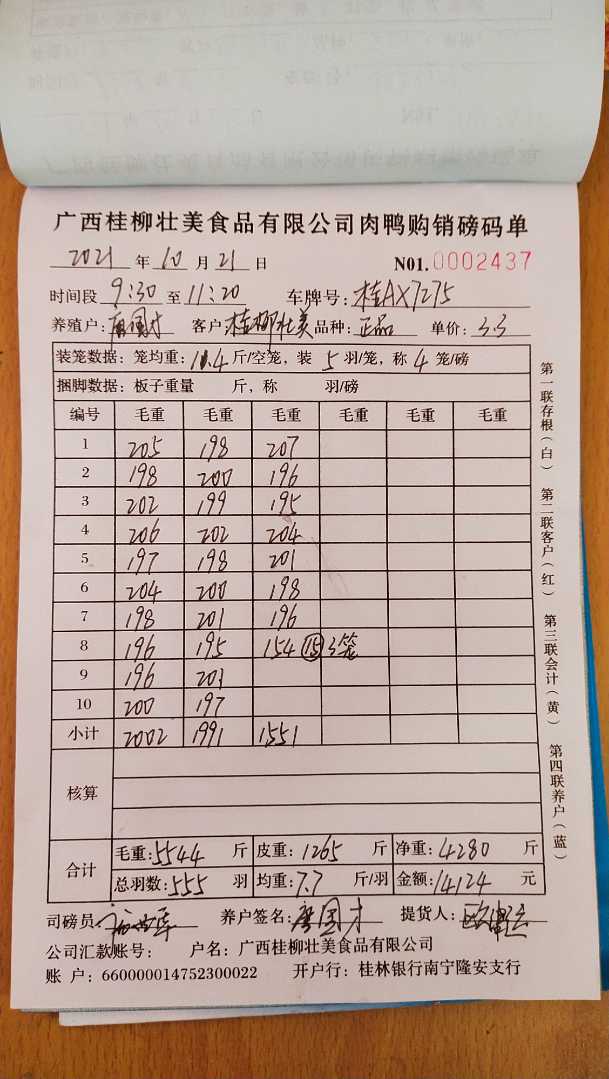 广西桂柳壮美食品有限公司肉鸭购销磅码单
2021 年 10 月 21 日 N01. 0002437
时间段 9:30 至 11:20 车牌号: 桂AX7275
养殖户: 唐国才 客户: 桂柳壮美 品种: 正品 单价: 3.3
装笼数据: 笼均重: 11.4 斤/空笼, 装 5 羽/笼, 称 4 笼/磅
捆脚数据: 板子重量 斤, 称 羽/磅
编号 毛重 毛重 毛重 毛重 毛重 毛重
1 205 198 207
2 198 200 196
3 202 199 195
4 206 202 204
5 197 198 201
6 204 200 198
7 198 201 196
8 196 195 154 ⑮ 3笼
9 196 201
10 200 197
小计 2002 1991 1551
核算
合计 毛重: 5544 斤 皮重: 1265 斤 净重: 4280 斤
总羽数: 555 羽 均重: 7.7 斤/羽 金额: 14124 元
司磅员 养户签名: 唐国才 提货人:
公司汇款账号: 户名: 广西桂柳壮美食品有限公司
账 户: 660000014752300022 开户行: 桂林银行南宁隆安支行
第一联存根(白) 第二联客户(红) 第三联会计(黄) 第四联养户(蓝)